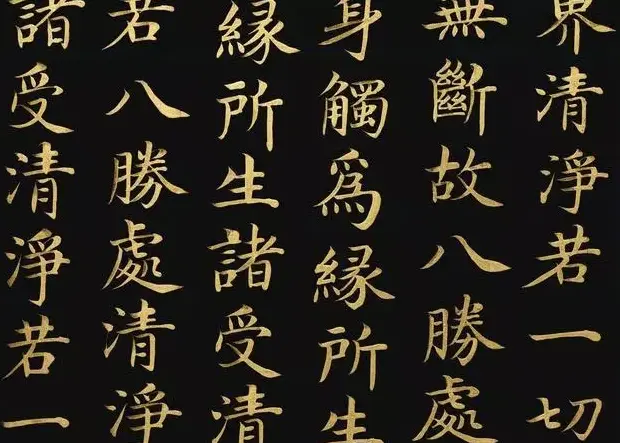 界清淨若一切
無斷故八勝處
身觸為緣所生
緣所生諸受清
若八勝處清淨
諸受清淨若一